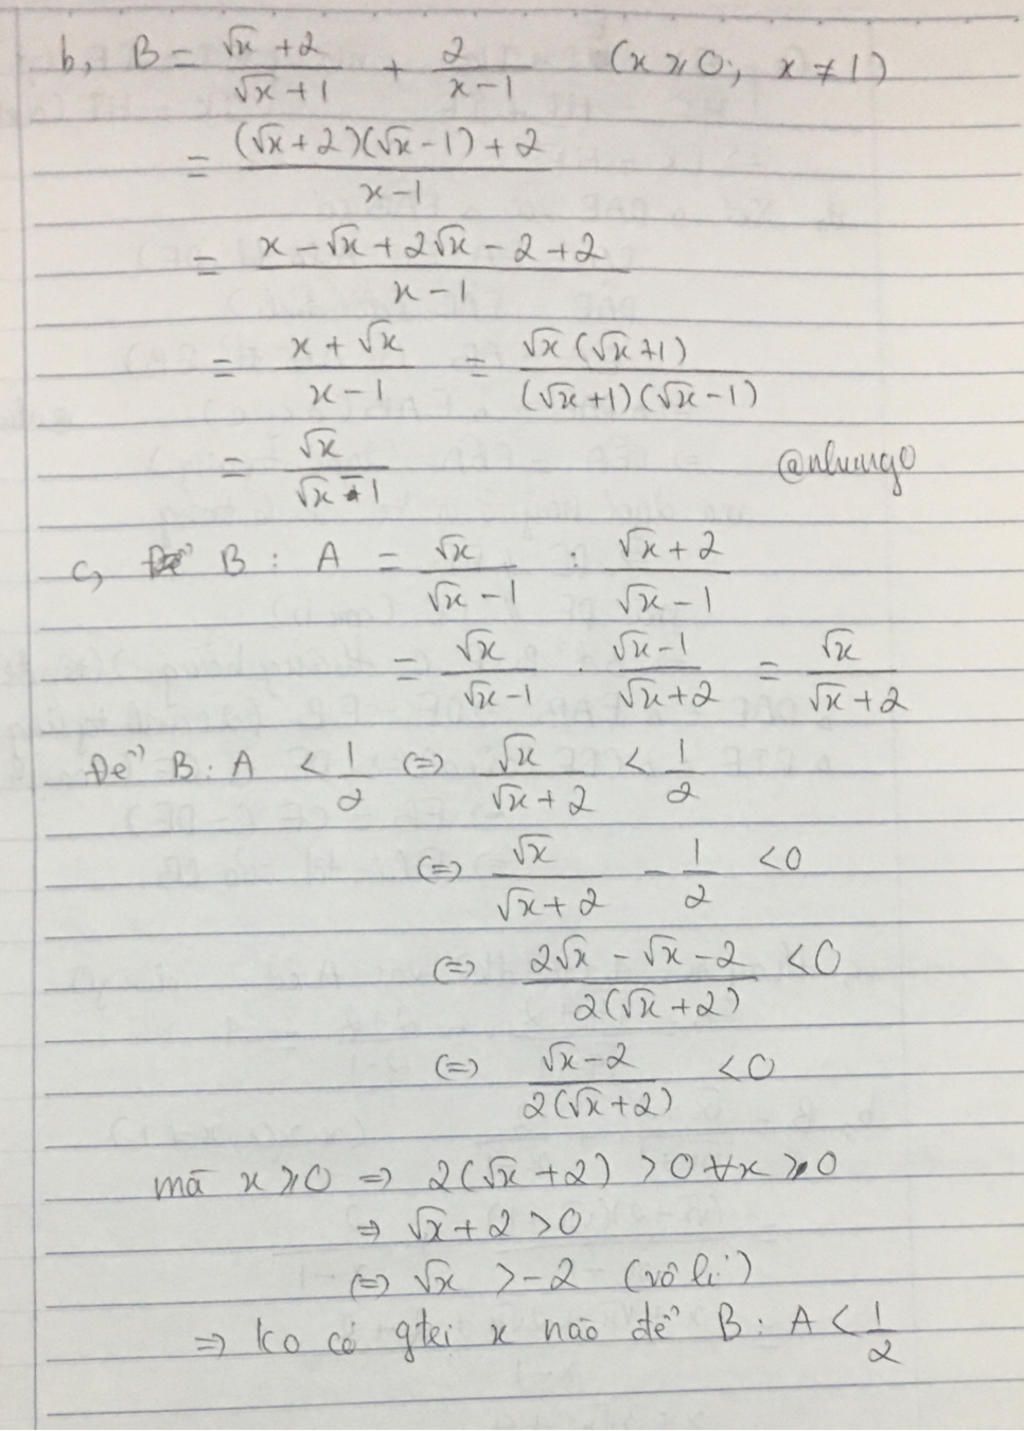 b, B = (√x + 2)/(√x + 1) + 2/(x - 1) (x ≥ 0; x ≠ 1)
= ((√x + 2)(√x - 1) + 2)/(x - 1)
= (x - √x + 2√x - 2 + 2)/(x - 1)
= (x + √x)/(x - 1) = (√x (√x + 1))/((√x + 1)(√x - 1))
= √x/(√x - 1) @nhungo
c, B : A = √x/(√x - 1) : (√x + 2)/(√x - 1)
= √x/(√x - 1) . (√x - 1)/(√x + 2) = √x/(√x + 2)
Để B : A < 1/2 (=) √x/(√x + 2) < 1/2
(=) √x/(√x + 2) - 1/2 < 0
(=) (2√x - √x - 2)/(2(√x + 2)) < 0
(=) (√x - 2)/(2(√x + 2)) < 0
mà x ≥ 0 => 2(√x + 2) > 0 ∀x ≥ 0
=> √x + 2 > 0
(=) √x > -2 (vô lí)
=> ko có gtrị x nào để B : A < 1/2